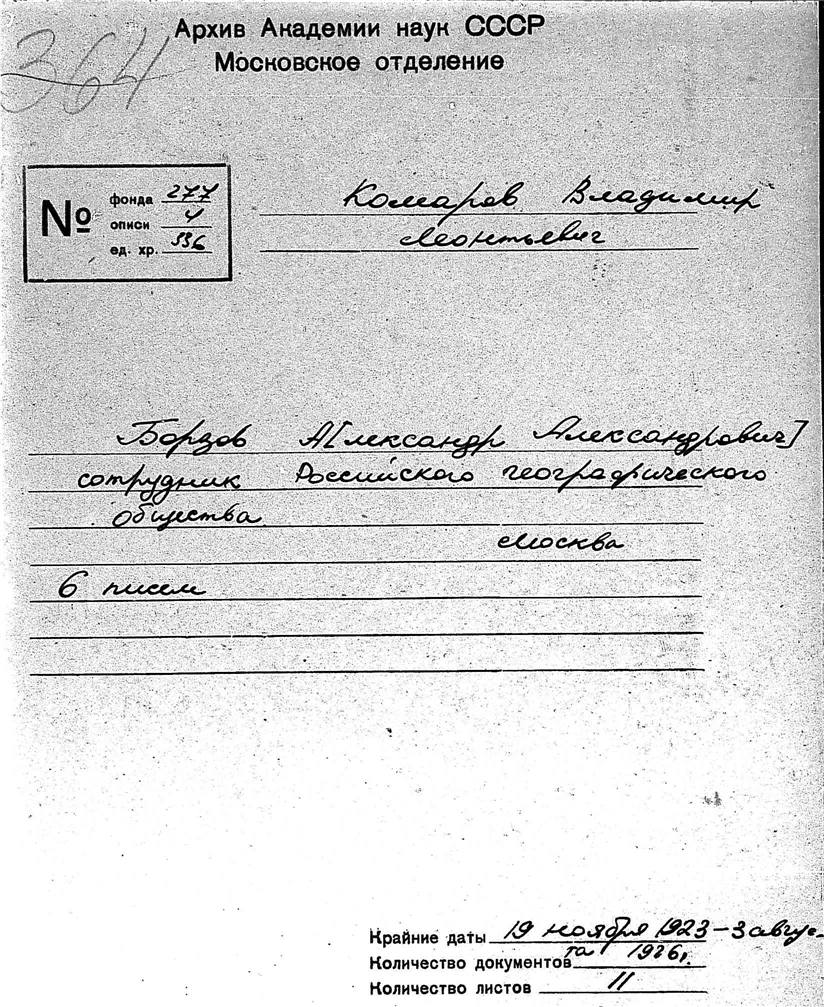 364
Архив Академии наук СССР
Московское отделение
№
фонда 277
описи 4
ед. хр. 336
Комаров Владимир
Леонтьевич
Борзов А[лександр Александрович]
сотрудник Российского географического
общества
Москва
6 писем
Крайние даты 19 ноября 1923 – 3 авгус-
та 1926г.
Количество документов
Количество листов 11